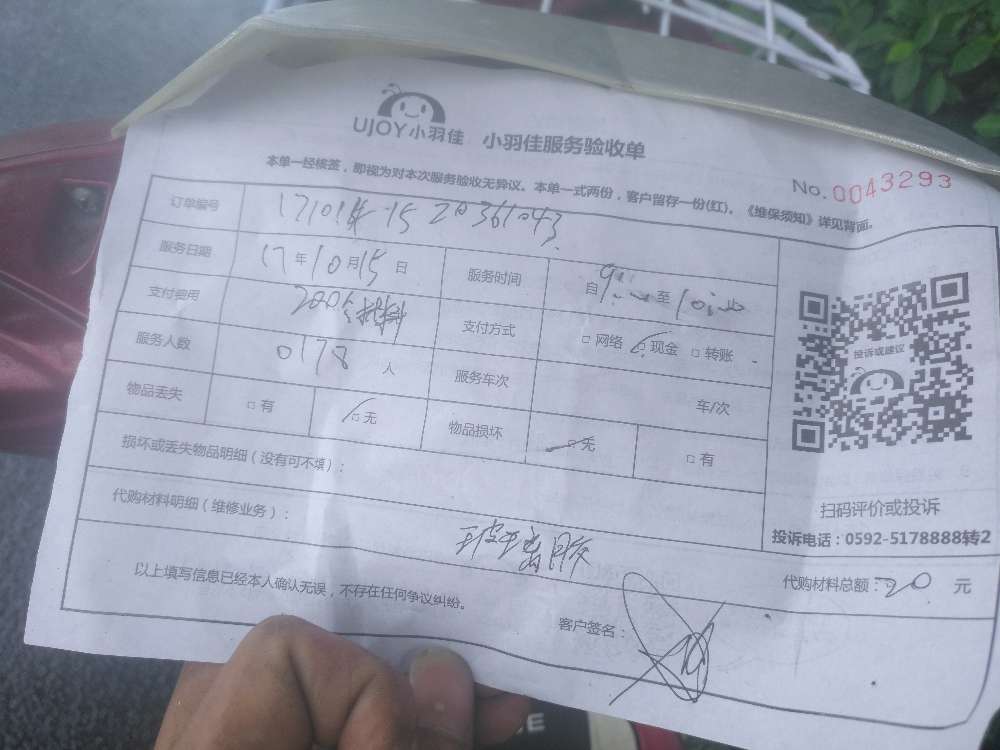 UJOY小羽佳 小羽佳服务验收单
本单一经续签，即视为对本次服务验收无异议。本单一式两份，客户留存一份(红)。《维保须知》详见背面。
No.0043293
订单编号 15 20361043
服务日期 17年10月15日 服务时间 自9: 至10:
支付费用 200 材料 支付方式 □网络 □现金 □转账
服务人数 0178 人 服务车次 车/次
物品丢失 □有 □无 物品损坏 □无 □有
损坏或丢失物品明细（没有可不填）：
代购材料明细（维修业务）：
玻 胶
代购材料总额：20 元
以上填写信息已经本人确认无误，不存在任何争议纠纷。
客户签名：
投诉或建议
扫码评价或投诉
投诉电话：0592-5178888转2